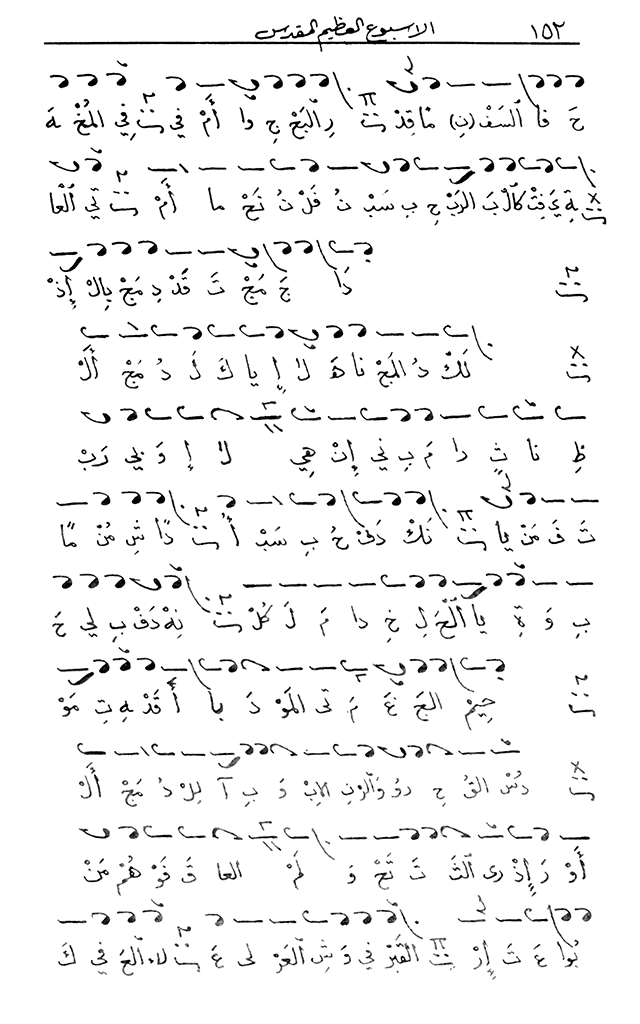 ١٥٢ الاسبوع العظيم المقدس
حَ فا السَفْ (نِ) مًا قِدْ رِ البَحْ جِ وا أَمْ في في المُخْ هَ
ةِ يَ فِتْ كَالْ بَ الرَبْ حِ بِ سَبْ نُ فَلْ نُ نَحْ ما أَمْ تي اَلْ عا
دَا جَ مَجْ تَ قَدْ دِ مَجْ بِالْ إِذْ
لَكْ دُ المَجْ نا هَ لا إِ يا كَ لَ دُ مَجْ أَلْ
ظِ نا ثِ دا مَ بِ ني إِنْ هِي لا إِ وَ بي رَبْ
تَ فَ مَنْ يا نَكْ دَفْ حُ بِ سَبْ أُ دًا شِ مُنْ مًا
بِ وَ ةِ يا اَلْحَ لِ خِ دا مَ لَ كُلْ نِهْ دَفْ بِ لي حَ
حِيمْ الجَ عَ مَ تى المَوْ دَ با أَ قَدْ هِ تِ مَوْ
دُسْ القُ حِ رو وَالرْ نِ الاِبْ وَ بِ آ لِلْ دُ مَجْ أَلْ
أَوْ رَ إِذْ رى الثَ تَ تَحْ وَ لَمْ العا قَ فَوْ هُمْ مَنْ
بُوا عَ تَ إِرْ القَبْرْ في وَ شِ العَرْ لى عَ لاء العَ في كَ